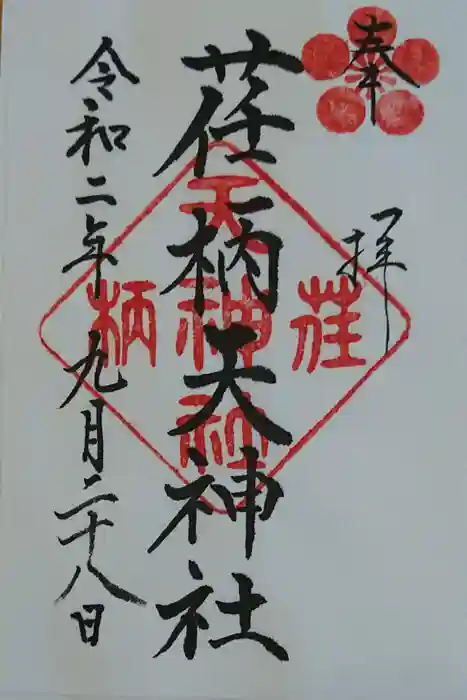 奉拝
荏柄天神社
令和二年九月二十八日
荏
天神社
柄